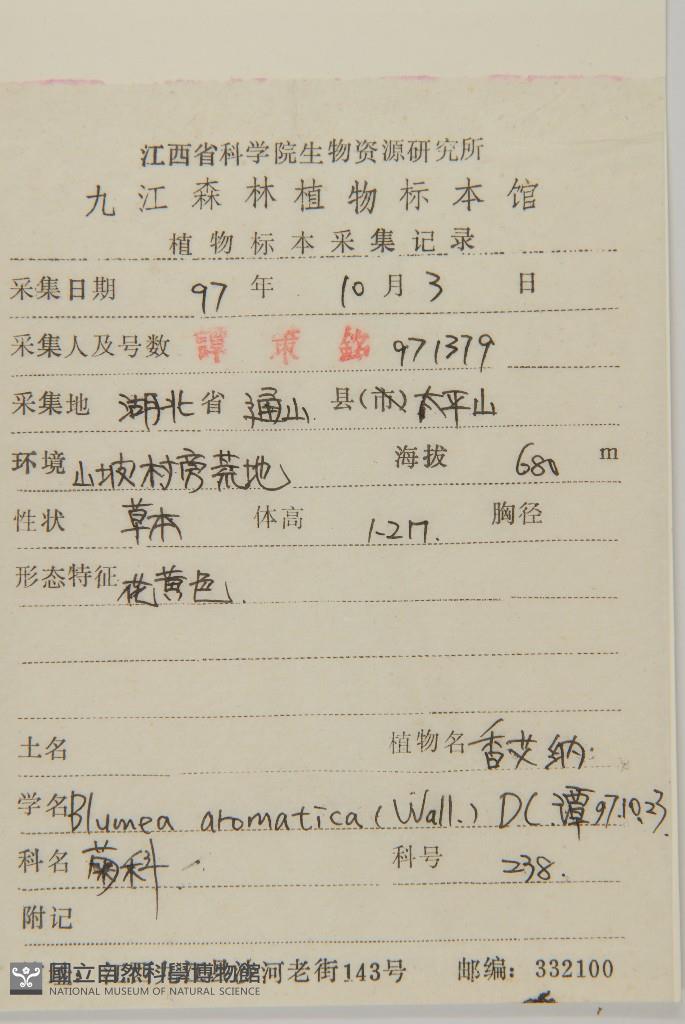 江西省科学院生物资源研究所
九江森林植物标本馆
植物标本采集记录
采集日期 97 年 10 月 3 日
采集人及号数 譚策銘 971379
采集地 湖北 省 通山 县(市) 太平山
环境 山坡村旁荒地 海拔 680 m
性状 草本 体高 1-2m. 胸径
形态特征 花黄色.
土名 植物名 香艾纳.
学名 Blumea aromatica (Wall.) DC. 潭 97.10.23
科名 菊科 科号 238.
附记
河老街143号 邮编: 332100
國立自然科學博物館
NATIONAL MUSEUM OF NATURAL SCIENCE